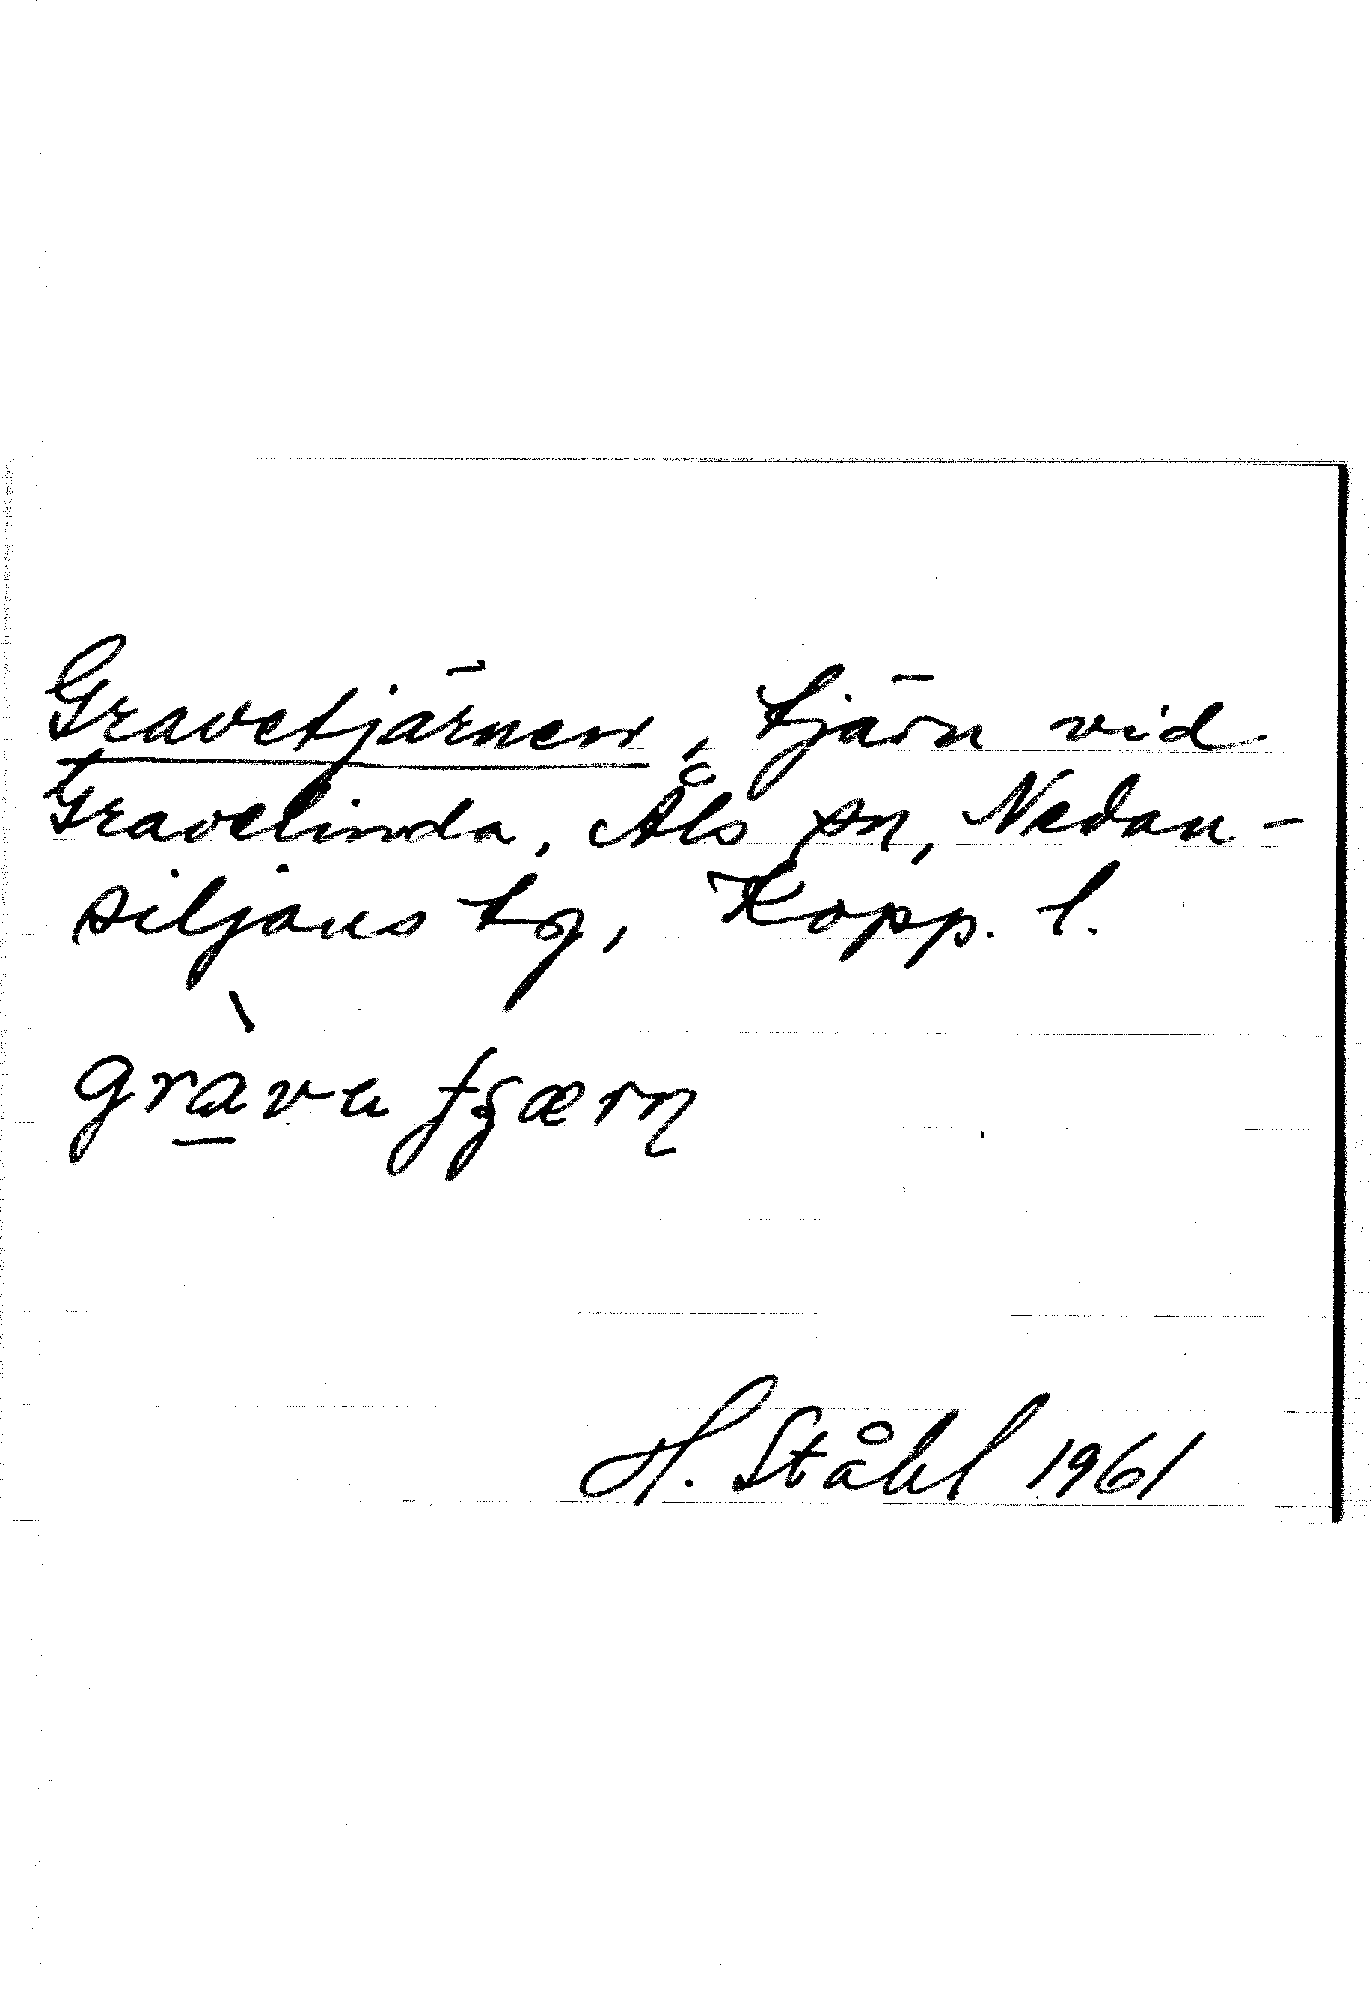 Gravetjärnen, tjärn vid
Gravelinda, Åls sn, Nedan-
siljans tg, Kopp. l.
gràva tjærn
H. Ståhl 1961